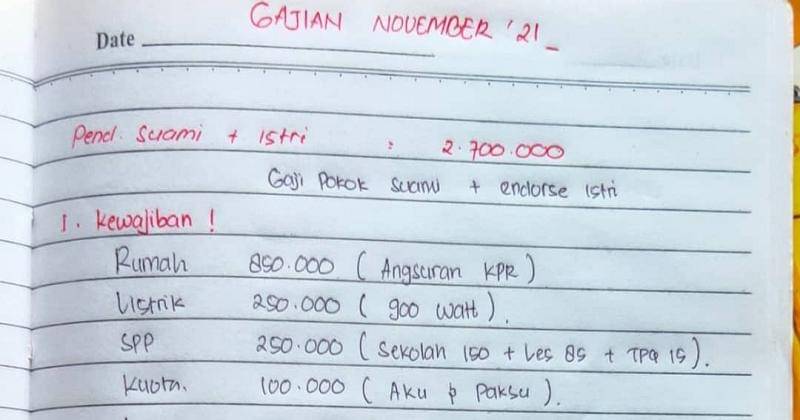 GAJIAN NOVEMBER '21
Date
Pend. Suami + Istri : 2.700.000
Gaji Pokok Suami + endorse Istri
1. Kewajiban !
Rumah 850.000 ( Angsuran KPR )
Listrik 250.000 ( 900 Watt ).
SPP 250.000 ( Sekolah 150 + Les 85 + TPQ 15 ).
Kuota. 100.000 ( Aku & Paksu ).